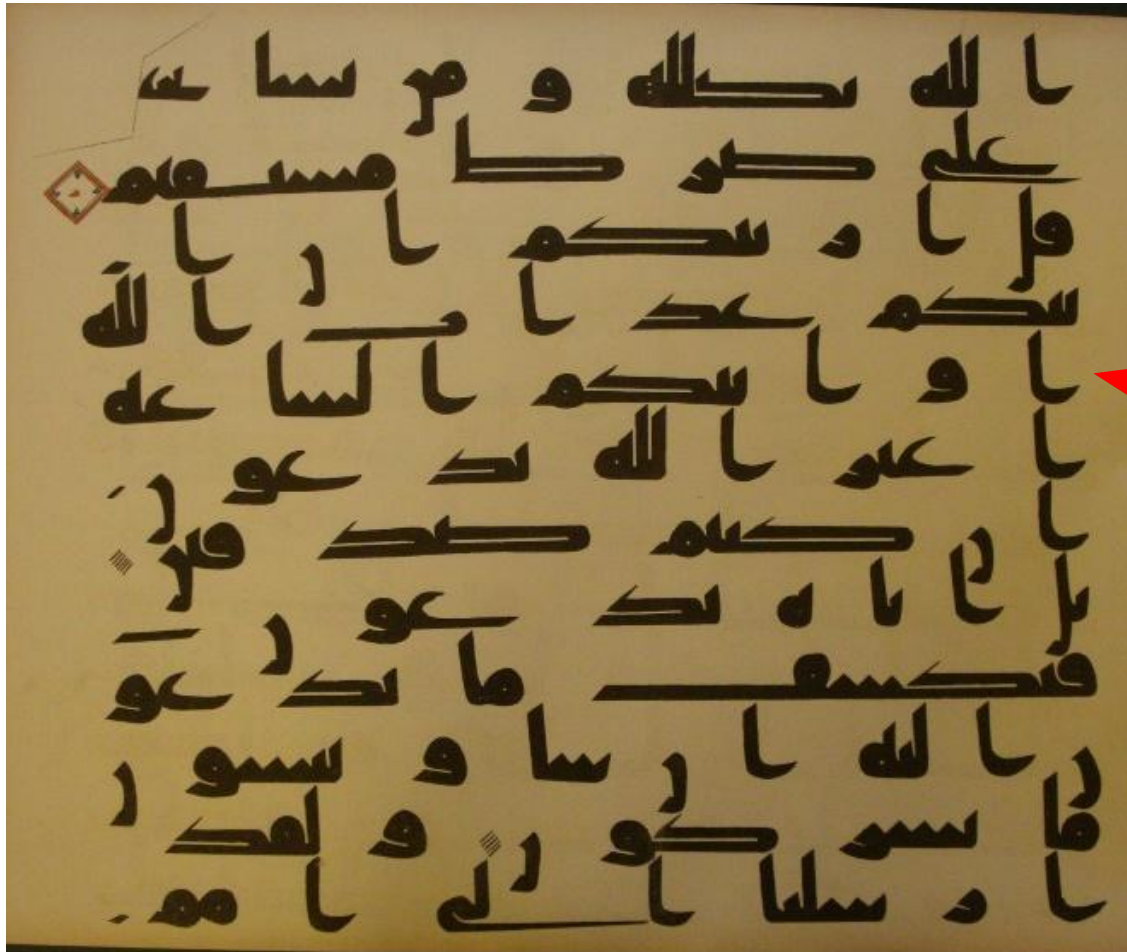 الله يضلله و من يشا
على صرط مستقيم
قل ا ر يتكم ا ن ا
تيكم عذ ا ب ا لله
ا و ا تتكم ا لسا عه
ا غير ا لله تد عو ن
ا ن كنتم صد قين
بل ا يا ه تد عو ن
فيكشف ما تد عو
ن ا ليه ا ن شا و تنسو ن
ما تشر كو ن و لقد
ا ر سلنا ا لى ا مم